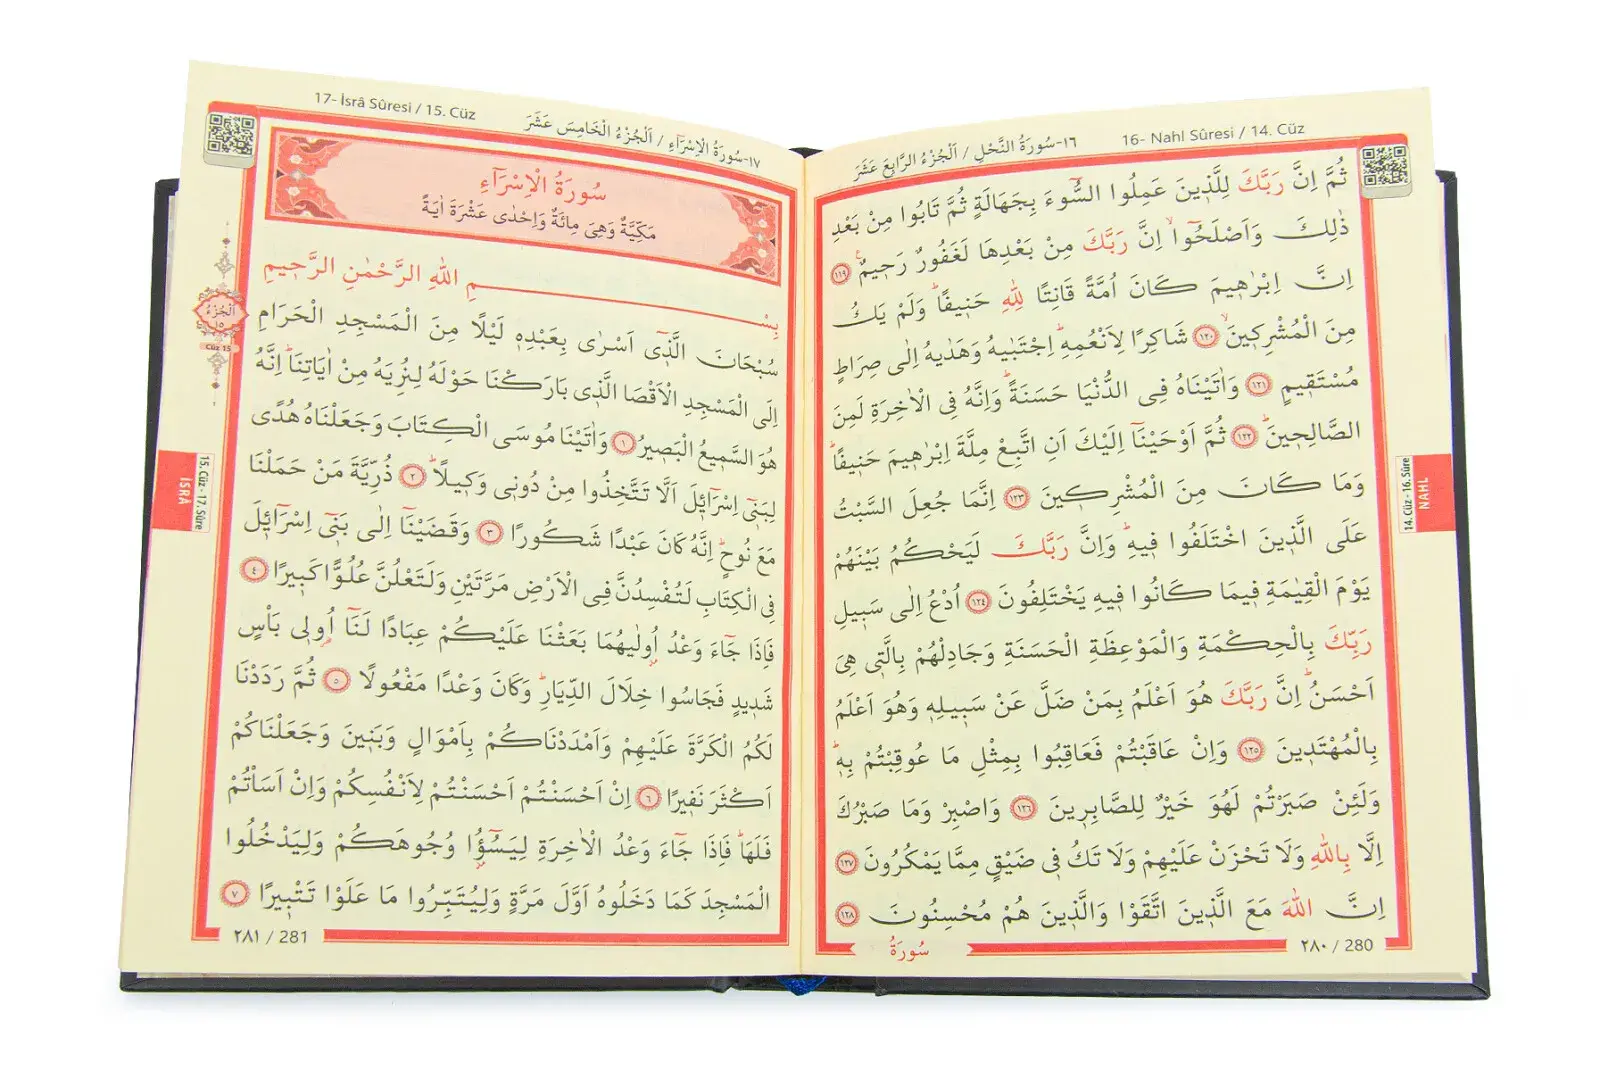 16- Nahl Sûresi / 14. Cüz
١٦-سُورَةُ النَّحْلِ / اَلْجُزْءُ الرَّابِعَ عَشَرَ
ثُمَّ اِنَّ رَبَّكَ لِلَّذ۪ينَ عَمِلُوا السُّٓوءَ بِجَهَالَةٍ ثُمَّ تَابُوا مِنْ بَعْدِ
ذٰلِكَ وَاَصْلَحُٓواۙ اِنَّ رَبَّكَ مِنْ بَعْدِهَا لَغَفُورٌ رَح۪يمٌ۟ ١١٩
اِنَّ اِبْرٰه۪يمَ كَانَ اُمَّةً قَانِتًا لِلّٰهِ حَن۪يفًاۜ وَلَمْ يَكُ
مِنَ الْمُشْرِك۪ينَۙ ١٢٠ شَاكِرًا لِاَنْعُمِهِۜ اِجْتَبٰيهُ وَهَدٰيهُ اِلٰى صِرَاطٍ
مُسْتَق۪يمٍ ١٢١ وَاٰتَيْنَاهُ فِي الدُّنْيَا حَسَنَةًۜ وَاِنَّهُ فِي الْاٰخِرَةِ لَمِنَ
الصَّالِح۪ينَۜ ١٢٢ ثُمَّ اَوْحَيْنَٓا اِلَيْكَ اَنِ اتَّبِعْ مِلَّةَ اِبْرٰه۪يمَ حَن۪يفًاۜ
وَمَا كَانَ مِنَ الْمُشْرِك۪ينَ ١٢٣ اِنَّمَا جُعِلَ السَّبْتُ
عَلَى الَّذ۪ينَ اخْتَلَفُوا ف۪يهِۜ وَاِنَّ رَبَّكَ لَيَحْكُمُ بَيْنَهُمْ
يَوْمَ الْقِيٰمَةِ ف۪يمَا كَانُوا ف۪يهِ يَخْتَلِفُونَ ١٢٤ اُدْعُ اِلٰى سَب۪يلِ
رَبِّكَ بِالْحِكْمَةِ وَالْمَوْعِظَةِ الْحَسَنَةِ وَجَادِلْهُمْ بِالَّت۪ي هِيَ
اَحْسَنُۜ اِنَّ رَبَّكَ هُوَ اَعْلَمُ بِمَنْ ضَلَّ عَنْ سَب۪يلِه۪ وَهُوَ اَعْلَمُ
بِالْمُهْتَد۪ينَ ١٢٥ وَاِنْ عَاقَبْتُمْ فَعَاقِبُوا بِمِثْلِ مَا عُوقِبْتُمْ بِه۪ۜ
وَلَئِنْ صَبَرْتُمْ لَهُوَ خَيْرٌ لِلصَّابِر۪ينَ ١٢٦ وَاصْبِرْ وَمَا صَبْرُكَ
اِلَّا بِاللّٰهِ وَلَا تَحْزَنْ عَلَيْهِمْ وَلَا تَكُ ف۪ي ضَيْقٍ مِمَّا يَمْكُرُونَ ١٢٧
اِنَّ اللّٰهَ مَعَ الَّذ۪ينَ اتَّقَوْا وَالَّذ۪ينَ هُمْ مُحْسِنُونَ ١٢٨
سُورَةُ
٢٨٠ / 280
14. Cüz - 16. Sûre
NAHL
17- İsrâ Sûresi / 15. Cüz
١٧-سُورَةُ الْاِسْرَٓاءِ / اَلْجُزْءُ الْخَامِسَ عَشَرَ
سُورَةُ الْاِسْرَٓاءِ
مَكِّيَّةٌ وَهِيَ مِائَةٌ وَاِحْدٰى عَشْرَةَ اٰيَةً
بِسْمِ اللّٰهِ الرَّحْمٰنِ الرَّح۪يمِ
سُبْحَانَ الَّذ۪ٓي اَسْرٰى بِعَبْدِه۪ لَيْلًا مِنَ الْمَسْجِدِ الْحَرَامِ
اِلَى الْمَسْجِدِ الْاَقْصَا الَّذ۪ي بَارَكْنَا حَوْلَهُ لِنُرِيَهُ مِنْ اٰيَاتِنَاۜ اِنَّهُ
هُوَ السَّم۪يعُ الْبَص۪يرُ ١ وَاٰتَيْنَا مُوسَى الْكِتَابَ وَجَعَلْنَاهُ هُدًى
لِبَن۪ٓي اِسْرَٓائ۪لَ اَلَّا تَتَّخِذُوا مِنْ دُون۪ي وَك۪يلًاۜ ٢ ذُرِّيَّةَ مَنْ حَمَلْنَا
مَعَ نُوحٍۜ اِنَّهُ كَانَ عَبْدًا شَكُورًا ٣ وَقَضَيْنَٓا اِلٰى بَن۪ٓي اِسْرَٓائ۪لَ
فِي الْكِتَابِ لَتُفْسِدُنَّ فِي الْاَرْضِ مَرَّتَيْنِ وَلَتَعْلُنَّ عُلُوًّا كَب۪يرًا ٤
فَاِذَا جَٓاءَ وَعْدُ اُو۫لٰيهُمَا بَعَثْنَا عَلَيْكُمْ عِبَادًا لَنَٓا اُو۬ل۪ي بَأْسٍ
شَد۪يدٍ فَجَاسُوا خِلَالَ الدِّيَارِۜ وَكَانَ وَعْدًا مَفْعُولًا ٥ ثُمَّ رَدَدْنَا
لَكُمُ الْكَرَّةَ عَلَيْهِمْ وَاَمْدَدْنَاكُمْ بِاَمْوَالٍ وَبَن۪ينَ وَجَعَلْنَاكُمْ
اَكْثَرَ نَف۪يرًا ٦ اِنْ اَحْسَنْتُمْ اَحْسَنْتُمْ لِاَنْفُسِكُمْ وَاِنْ اَسَأْتُمْ
فَلَهَاۜ فَاِذَا جَٓاءَ وَعْدُ الْاٰخِرَةِ لِيَسُٓؤُ۫ا وُجُوهَكُمْ وَلِيَدْخُلُوا
الْمَسْجِدَ كَمَا دَخَلُوهُ اَوَّلَ مَرَّةٍ وَلِيُتَبِّرُوا مَا عَلَوْا تَتْب۪يرًا ٧
٢٨١ / 281
اَلْجُزْءُ
١٥
Cüz 15
15. Cüz - 17. Sûre
İSRÂ